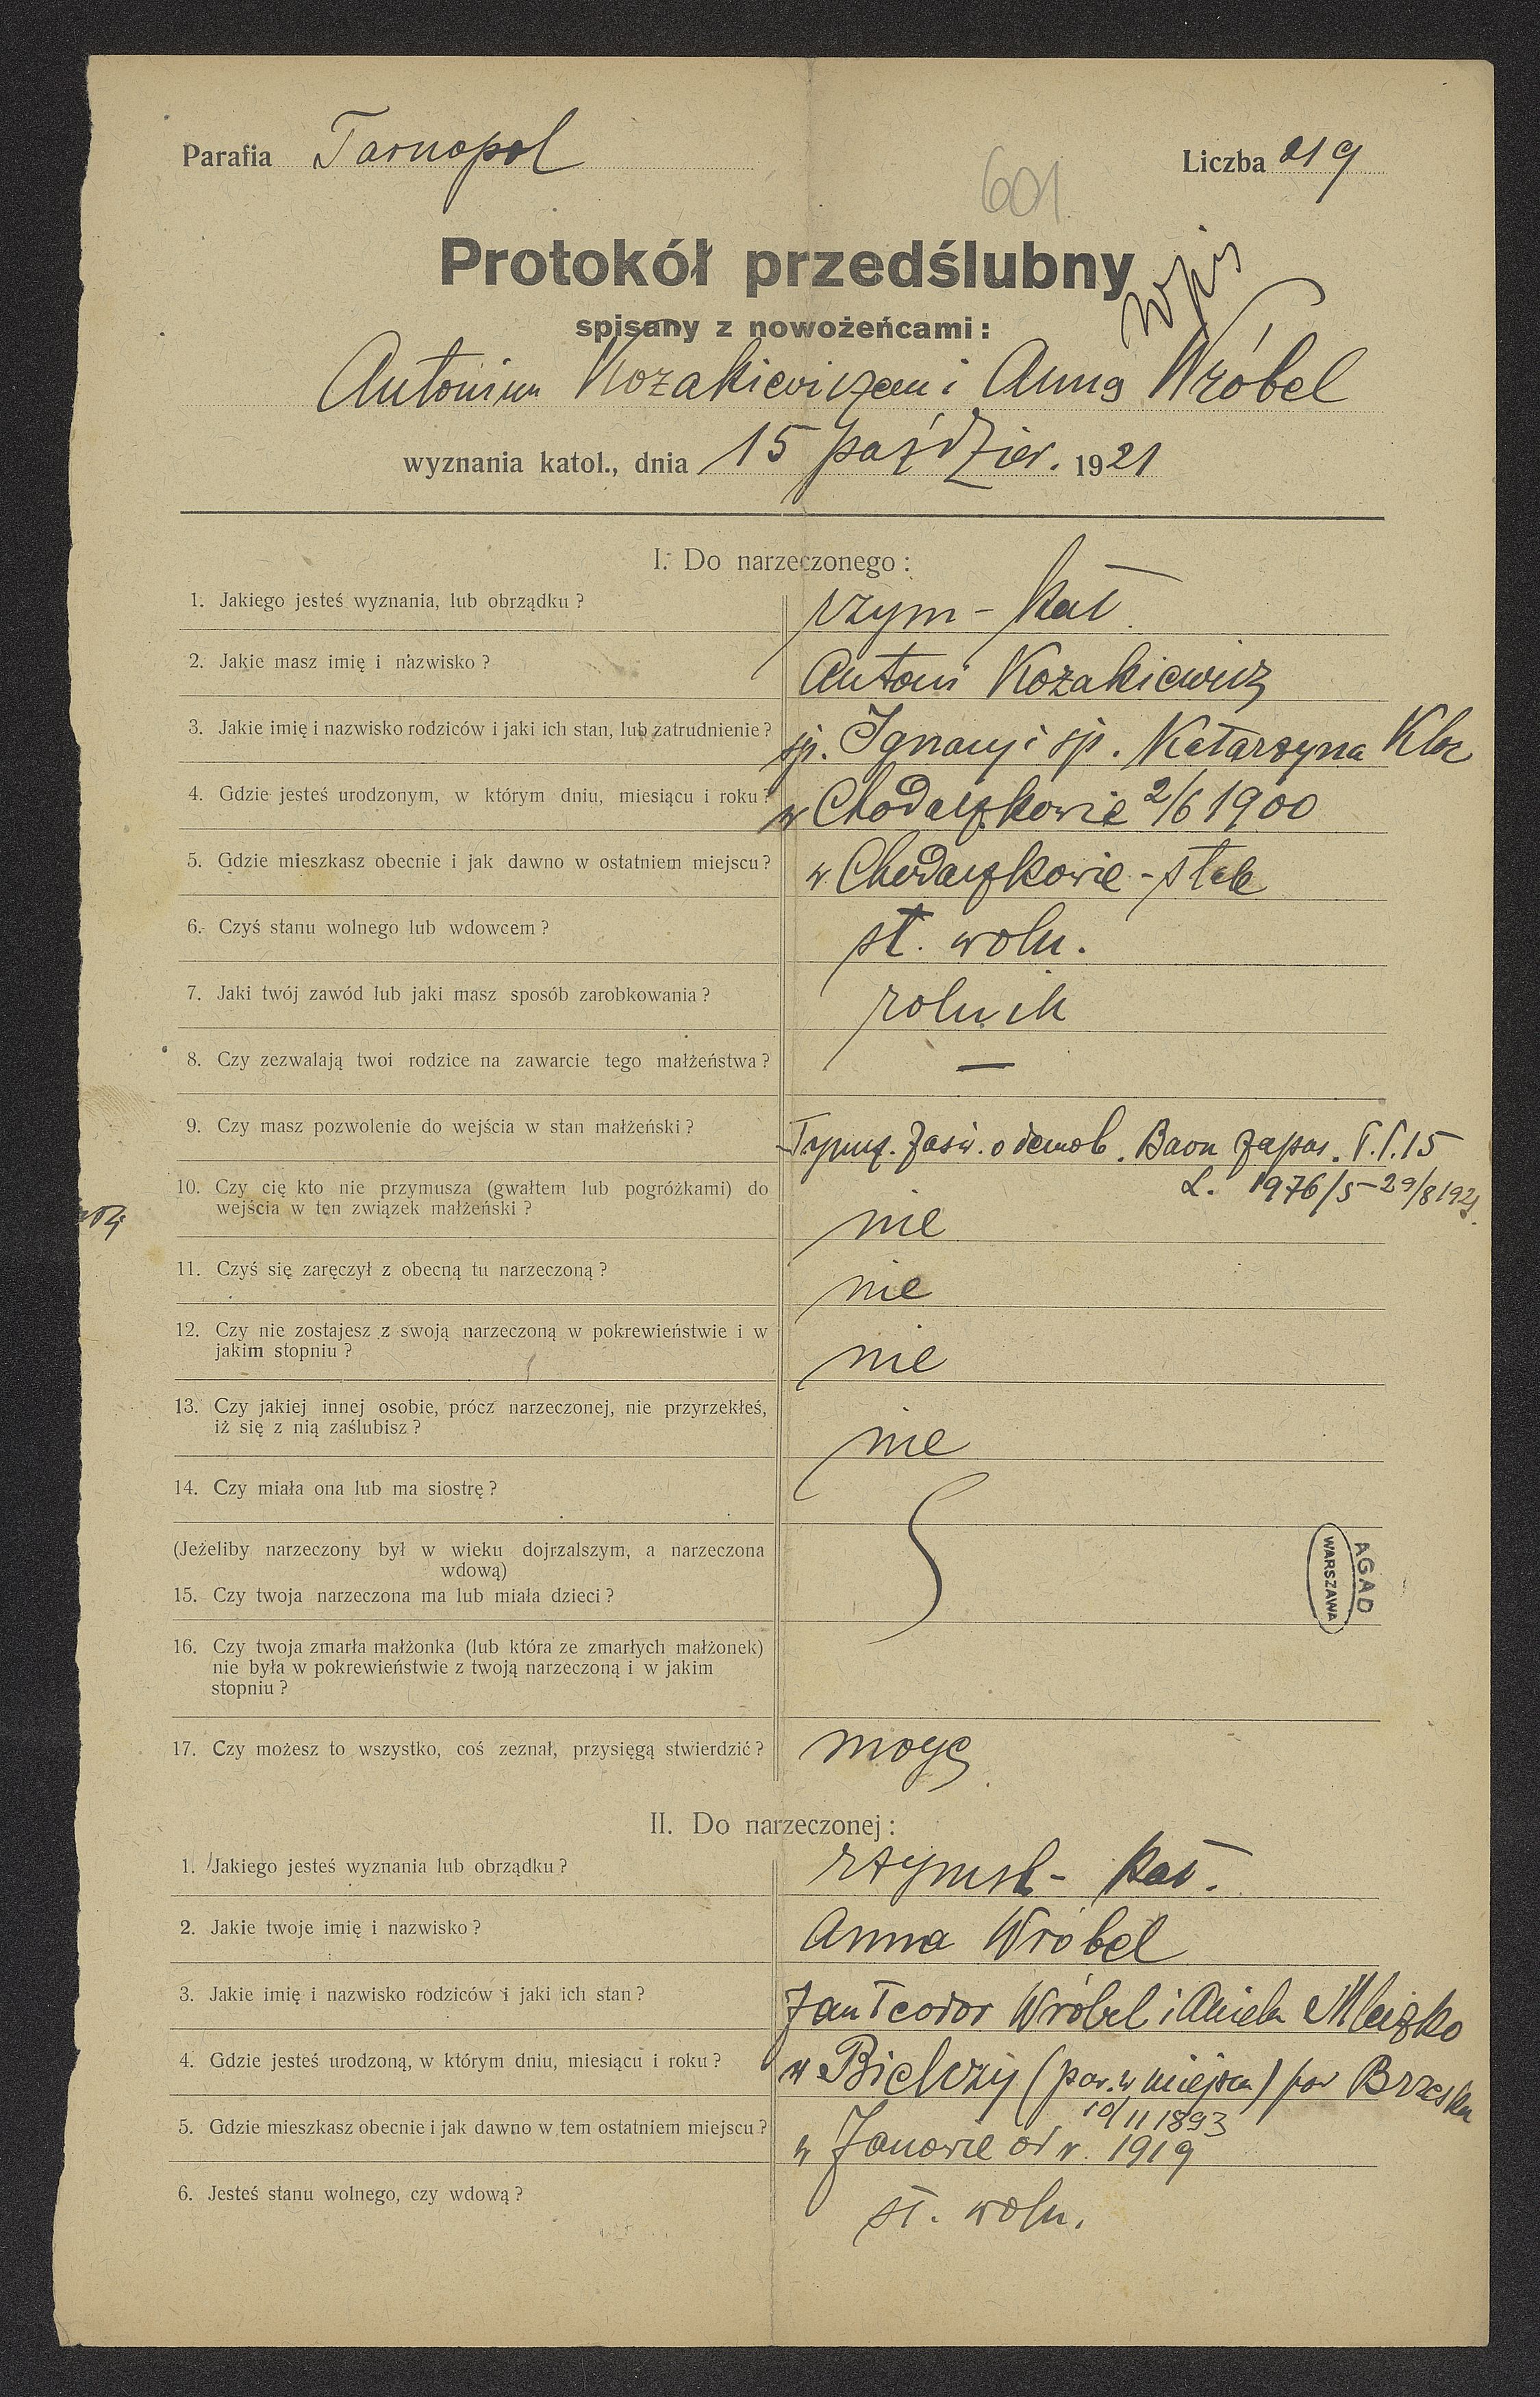 Parafia Tarnopol
Liczba 219
601
Protokół przedślubny
wpis
spisany z nowożeńcami:
Antonim Kozakiewiczem i Anną Wróbel
wyznania katol., dnia 15 paździer. 1921
I. Do narzeczonego:
1. Jakiego jesteś wyznania, lub obrządku? rzym-kat.
2. Jakie masz imię i nazwisko? Antoni Kozakiewicz
3. Jakie imię i nazwisko rodziców i jaki ich stan, lub zatrudnienie? śp. Ignacy i śp. Katarzyna
4. Gdzie jesteś urodzonym, w którym dniu, miesiącu i roku? w Chodaczkowie 2/6 1900
5. Gdzie mieszkasz obecnie i jak dawno w ostatniem miejscu? w Chodaczkowie - stale
6. Czyś stanu wolnego lub wdowcem? st. woln.
7. Jaki twój zawód lub jaki masz sposób zarobkowania? rolnik
8. Czy zezwalają twoi rodzice na zawarcie tego małżeństwa? —
9. Czy masz pozwolenie do wejścia w stan małżeński? Tymcz. zaśw. o demob. Baon zapas.
L. 1976/5 29/8 1921.
10. Czy cię kto nie przymusza (gwałtem lub pogróżkami) do
wejścia w ten związek małżeński? nie
11. Czyś się zaręczył z obecną tu narzeczoną? nie
12. Czy nie zostajesz z swoją narzeczoną w pokrewieństwie i w
jakim stopniu? nie
13. Czy jakiej innej osobie, prócz narzeczonej, nie przyrzekłeś,
iż się z nią zaślubisz? nie
14. Czy miała ona lub ma siostrę?
(Jeżeliby narzeczony był w wieku dojrzalszym, a narzeczona
wdową)
15. Czy twoja narzeczona ma lub miała dzieci?
AGAD
WARSZAWA
16. Czy twoja zmarła małżonka (lub która ze zmarłych małżonek)
nie była w pokrewieństwie z twoją narzeczoną i w jakim
stopniu?
17. Czy możesz to wszystko, coś zeznał, przysięgą stwierdzić? mogę
II. Do narzeczonej:
1. Jakiego jesteś wyznania lub obrządku? rzymsk-kat.
2. Jakie twoje imię i nazwisko? Anna Wróbel
3. Jakie imię i nazwisko rodziców i jaki ich stan? Jan Teodor Wróbel i Aniela
4. Gdzie jesteś urodzoną, w którym dniu, miesiącu i roku? w Bielczy (par. w miejscu) pow Brzesku
10/11 1893
5. Gdzie mieszkasz obecnie i jak dawno w tem ostatniem miejscu? w Janowie od r. 1919
6. Jesteś stanu wolnego, czy wdową? st. woln.